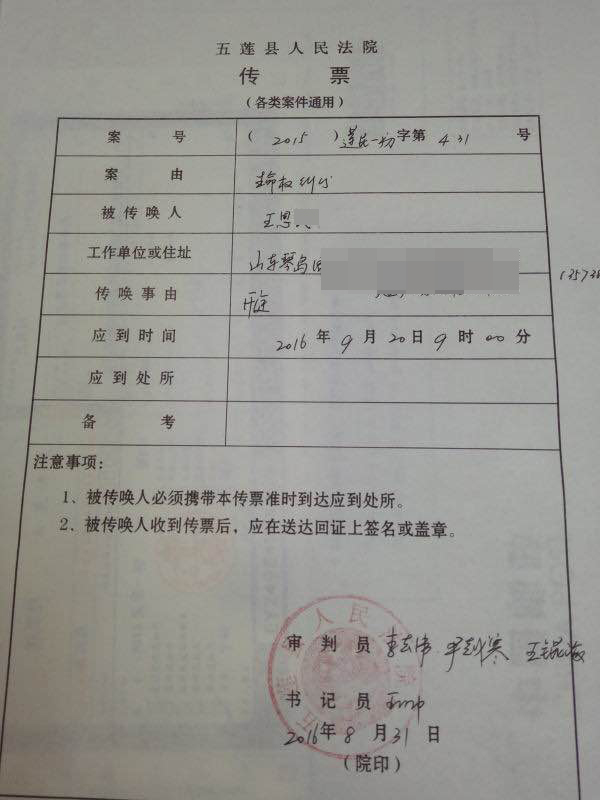 五莲县人民法院
传 票
（各类案件通用）
案 号 （ 2015 ）莲民一初 字第 431 号
案 由 生命权纠纷
被传唤人 王恩
工作单位或住址 山东琴岛
传唤事由 开庭
应到时间 2016 年 9 月 20 日 9 时 00 分
应到处所
备 考
注意事项：
1、被传唤人必须携带本传票准时到达应到处所。
2、被传唤人收到传票后，应在送达回证上签名或盖章。
审 判 员
书 记 员
2016年 8 月 31 日
（院印）
13573